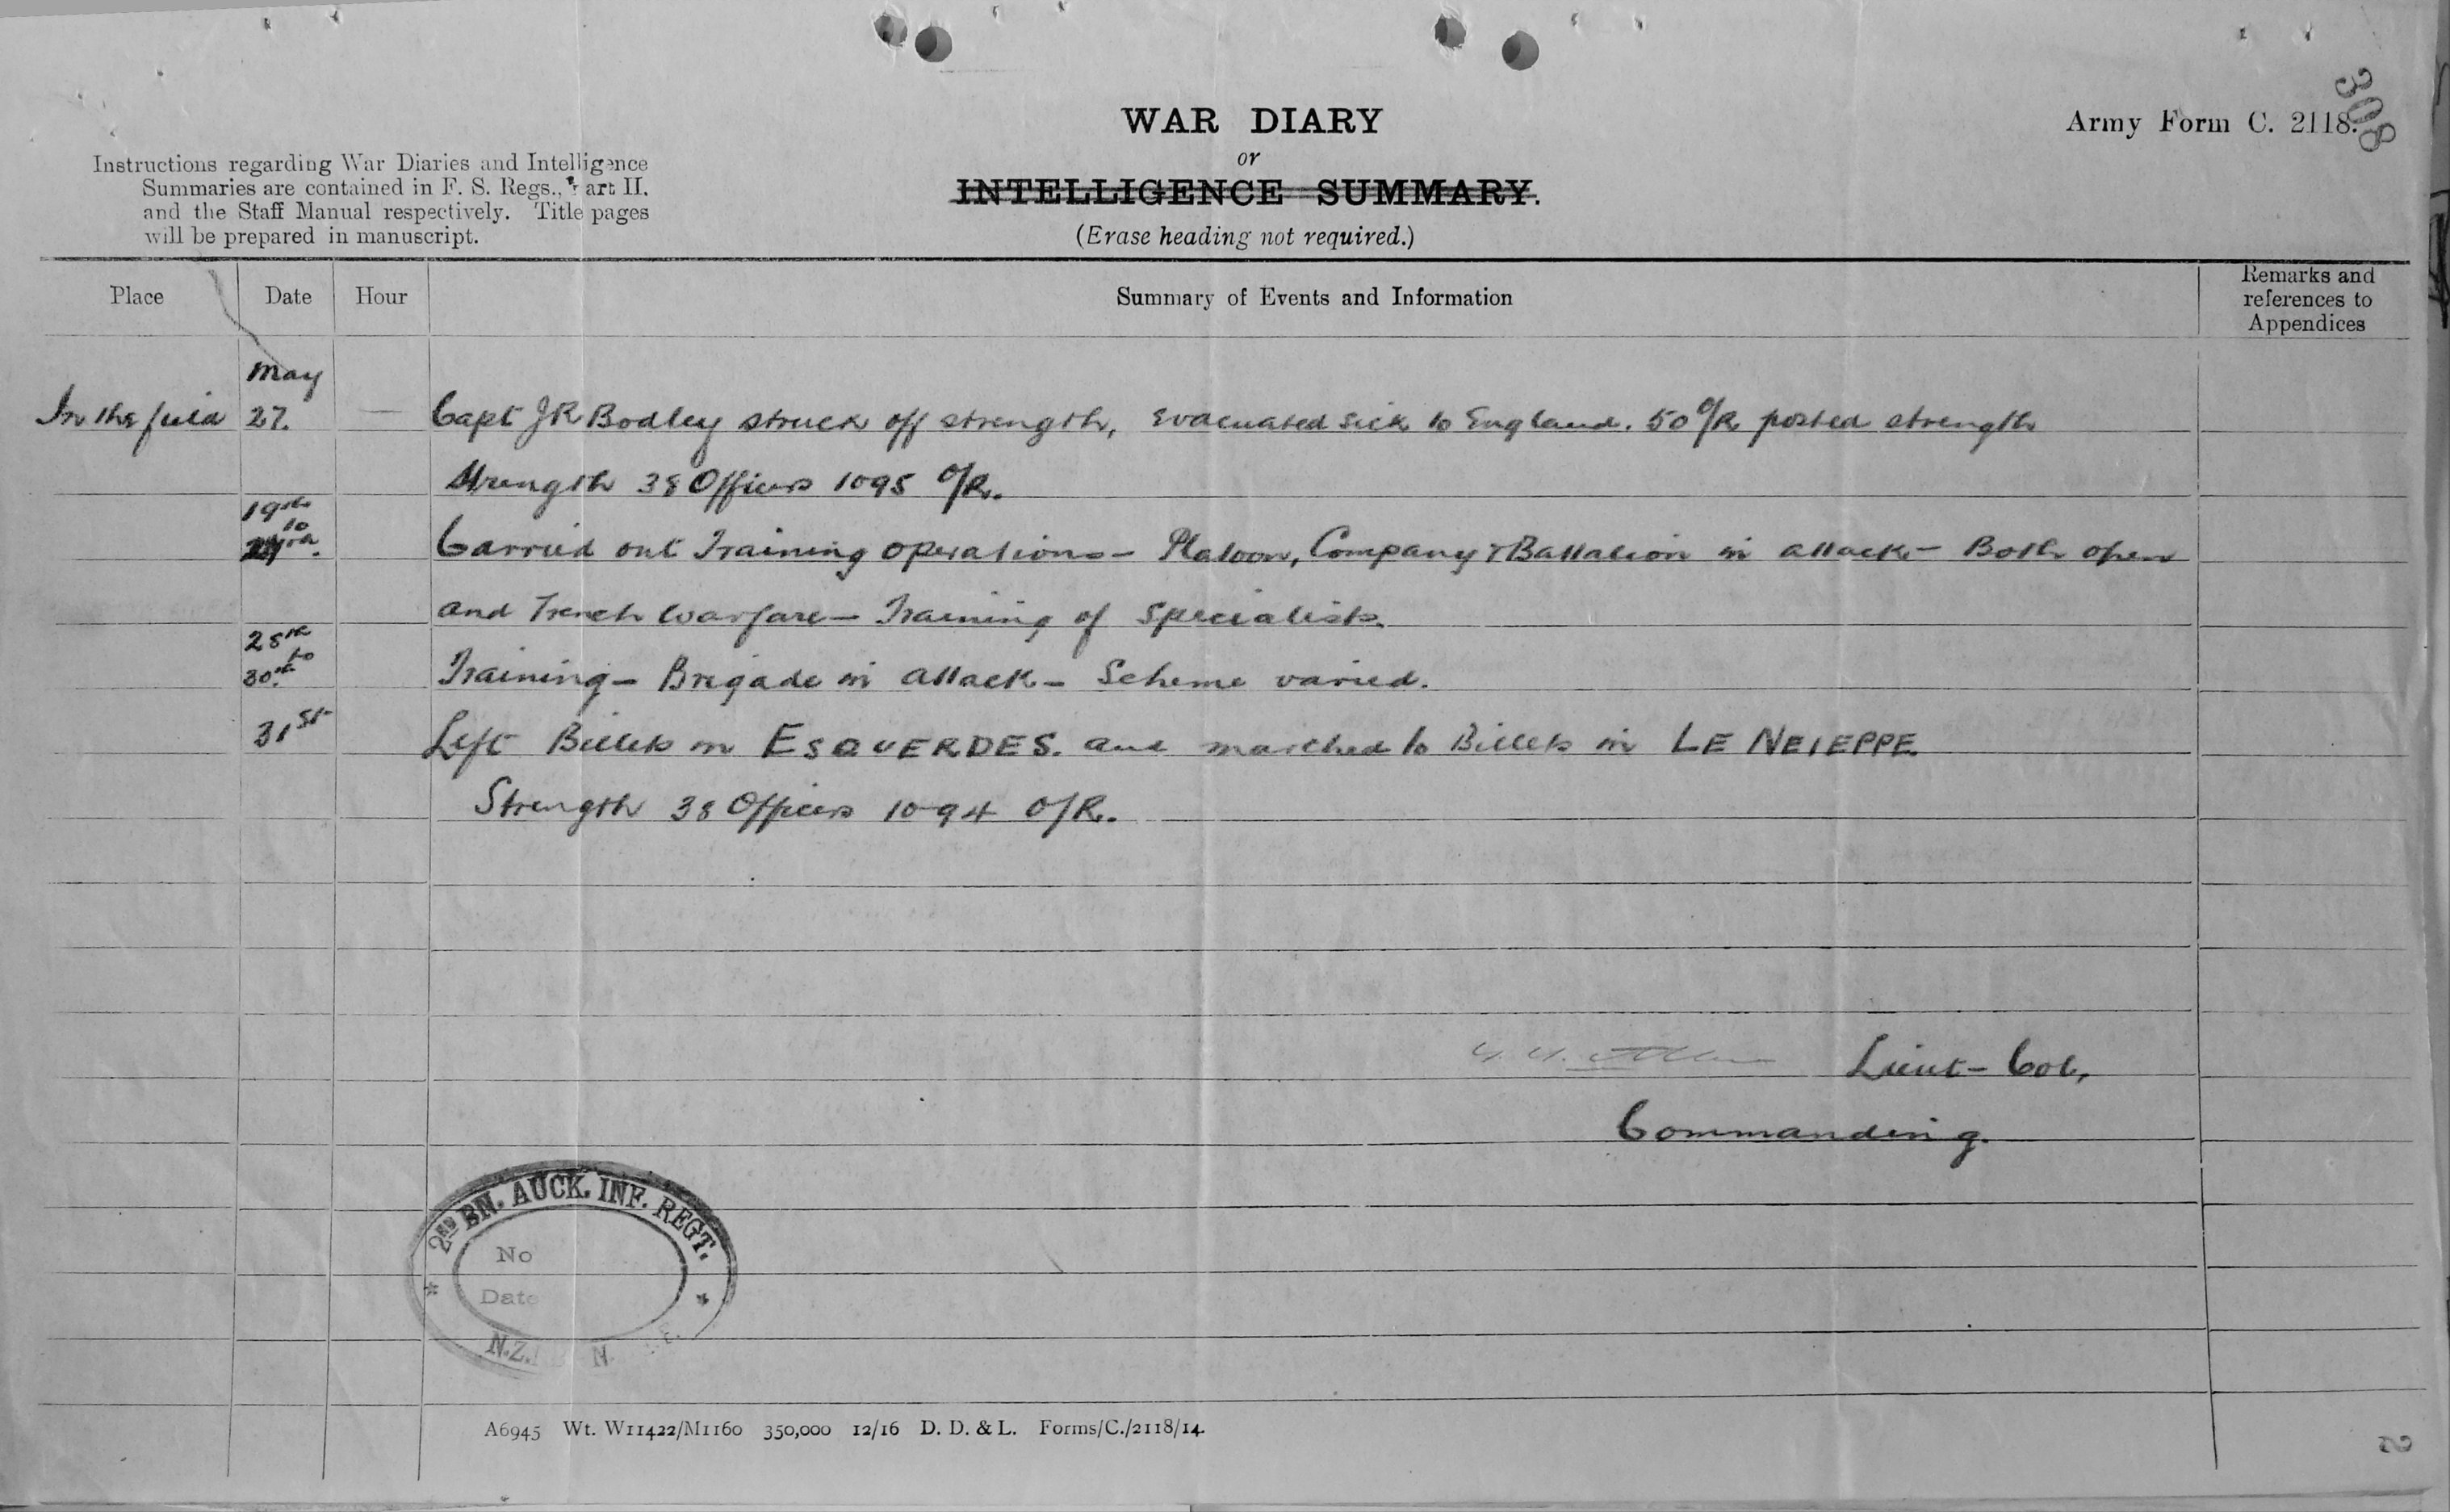 308
WAR DIARY
Army Form C. 2118.
or
INTELLIGENCE SUMMARY.
(Erase heading not required.)
Instructions regarding War Diaries and Intelligence
Summaries are contained in F. S. Regs., Part II.
and the Staff Manual respectively. Title pages
will be prepared in manuscript.
Place Date Hour Summary of Events and Information Remarks and references to Appendices
May
In the field 27. — Capt JR Bodley struck off strength, evacuated sick to England. 50 O/R posted strength
Strength 38 Officers 1095 O/R.
19th
to
Carried out Training operations - Platoon, Company & Battalion in attack - Both open
and Trench Warfare - Training of specialists.
25th
to
30th Training - Brigade in attack - Scheme varied.
31st Left Billets in ESQUERDES. and marched to Billets in LE NEIEPPE.
Strength 38 Officers 1094 O/R.
Lieut - Col,
Commanding.
2ND BN. AUCK. INF. REGT.
No
Date
N.Z.
A6945 Wt. W11422/M1160 350,000 12/16 D. D. & L. Forms/C./2118/14.